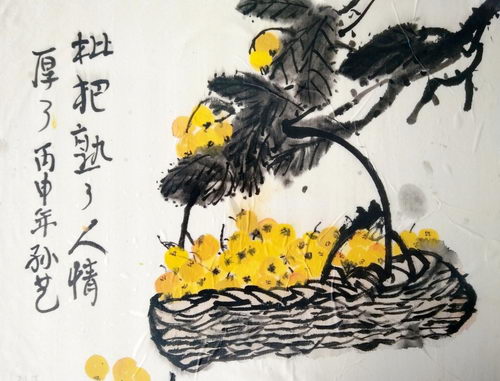 枇杷熟了人情
厚了丙申年孙艺